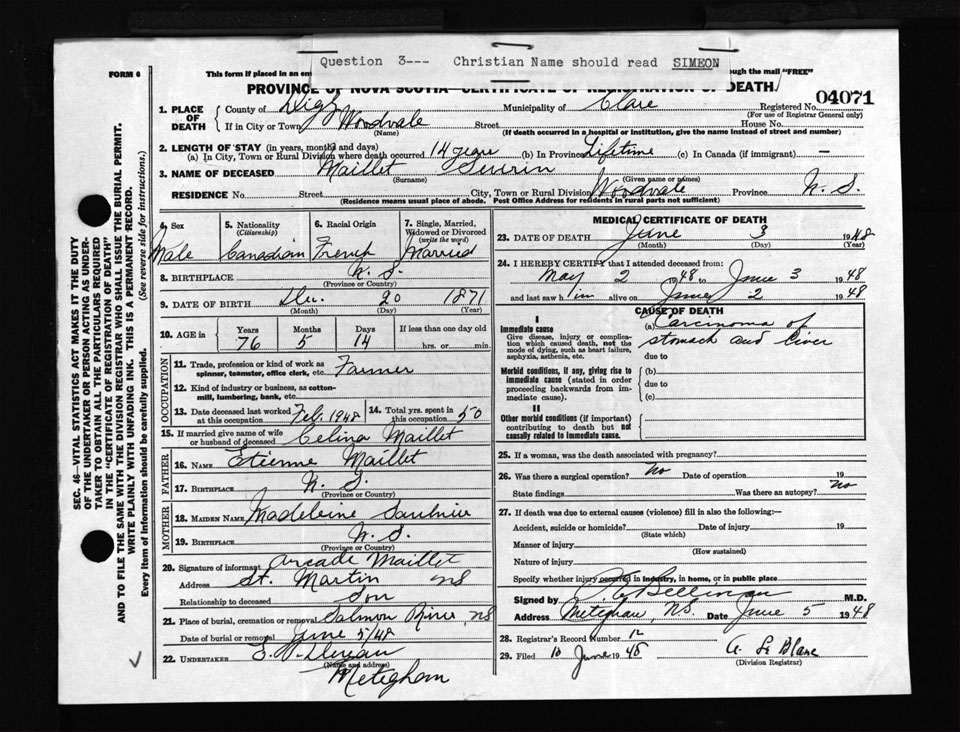 Question 3--- Christian Name should read SIMEON
FORM 6
This form if placed in an en ough the mail "FREE"
PROVINCE OF NOVA SCOTIA—CERTIFICATE OF REGISTRATION OF DEATH
04071
1. PLACE OF DEATH County of Digby Municipality of Clare Registered No.
(For use of Registrar General only)
If in City or Town Woodvale Street House No.
(Name) (If death occurred in a hospital or institution, give the name instead of street and number)
2. LENGTH OF STAY (in years, months and days)
(a) In City, Town or Rural Division where death occurred 14 years (b) In Province Lifetime (c) In Canada (if immigrant) —
3. NAME OF DECEASED Maillet
(Surname) (Given name or names)
RESIDENCE No. Street City, Town or Rural Division Woodvale Province N. S.
(Residence means usual place of abode. Post Office Address for residents in rural parts not sufficient)
4. Sex 5. Nationality 6. Racial Origin 7. Single, Married,
(Citizenship) Widowed or Divorced
(write the word)
Male Canadian French Married
8. BIRTHPLACE N. S.
(Province or Country)
9. DATE OF BIRTH Dec. 20 1871
(Month) (Day) (Year)
10. AGE in Years Months Days If less than one day old
76 5 14 hrs. or min.
OCCUPATION
11. Trade, profession or kind of work as
spinner, teamster, office clerk, etc. Farmer
12. Kind of industry or business, as cotton-
mill, lumbering, bank, etc.
13. Date deceased last worked at this occupation Feb. 1948 14. Total yrs. spent in this occupation 50
15. If married give name of wife
or husband of deceased Celina Maillet
FATHER
16. NAME Etienne Maillet
17. BIRTHPLACE N. S.
(Province or Country)
MOTHER
18. MAIDEN NAME Madeleine Saulnier
19. BIRTHPLACE N. S.
(Province or Country)
20. Signature of informant Arcade Maillet
Address St. Martin NS
Relationship to deceased Son
21. Place of burial, cremation or removal Salmon River, NS
Date of burial or removal June 5/48
22. UNDERTAKER
(Name and address)
Meteghan
MEDICAL CERTIFICATE OF DEATH
23. DATE OF DEATH June 3 1948
(Month) (Day) (Year)
24. I HEREBY CERTIFY that I attended deceased from:
May 2 1948 to June 3 1948
and last saw him alive on June 2 1948
CAUSE OF DEATH
I
Immediate cause (a) Carcinoma of
Give disease, injury or complica-
tion which caused death, not the stomach and liver
mode of dying, such as heart failure,
asphyxia, asthenia, etc. due to
Morbid conditions, if any, giving rise to (b)
immediate cause (stated in order due to
proceeding backwards from im-
mediate cause). (c)
II
Other morbid conditions (if important)
contributing to death but not
causally related to immediate cause.
25. If a woman, was the death associated with pregnancy?
26. Was there a surgical operation? No Date of operation 19
State findings Was there an autopsy? no
27. If death was due to external causes (violence) fill in also the following:—
Accident, suicide or homicide? Date of injury 19
(State which)
Manner of injury
(How sustained)
Nature of injury
Specify whether injury occurred in industry, in home, or in public place
Signed by Belliveau M.D.
Address Meteghan, N.S. Date June 5 1948
28. Registrar's Record Number 12
29. Filed 10 June 1948 A. LeBlanc
(Division Registrar)
SEC. 46—VITAL STATISTICS ACT MAKES IT THE DUTY
OF THE UNDERTAKER OR PERSON ACTING AS UNDER-
TAKER TO OBTAIN ALL THE PARTICULARS REQUIRED
IN THE "CERTIFICATE OF REGISTRATION OF DEATH"
AND TO FILE THE SAME WITH THE DIVISION REGISTRAR WHO SHALL ISSUE THE BURIAL PERMIT.
WRITE PLAINLY WITH UNFADING INK. THIS IS A PERMANENT RECORD.
Every item of information should be carefully supplied. (See reverse side for instructions.)